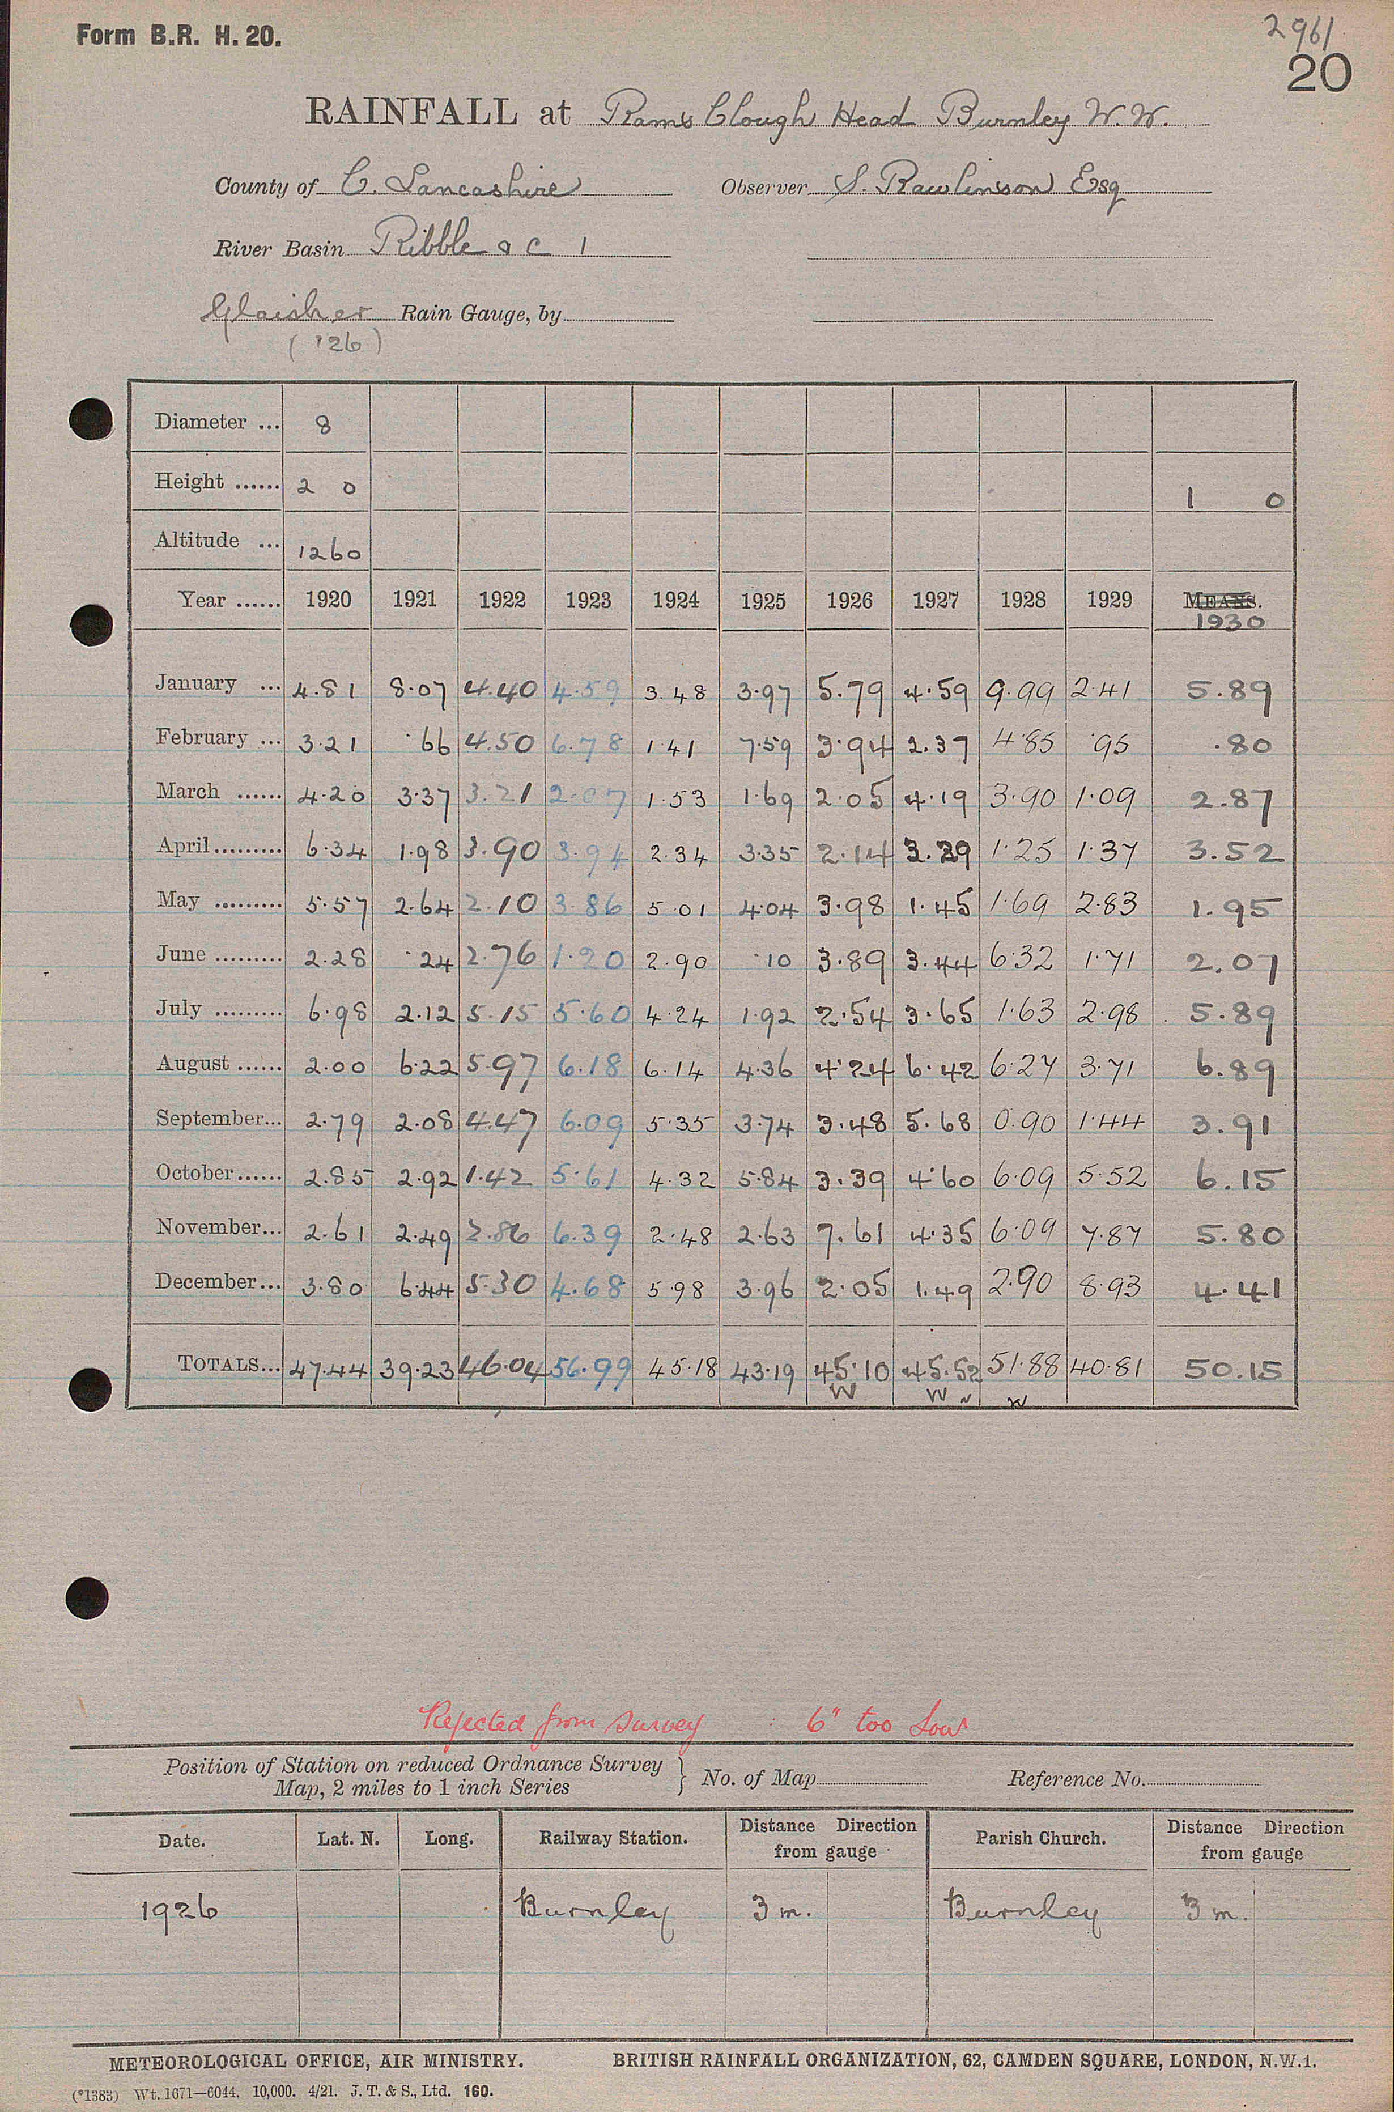 Form B.R. H. 20.
2961
20
RAINFALL at Rams Clough Head Burnley W.W.
County of C. Lancashire Observer S. Rawlinson Esq
River Basin Ribble & c 1
Glaisher Rain Gauge, by
( '26 )
Diameter ... 8
Height ...... 2 0 1 0
Altitude ... 1260
Year ...... 1920 1921 1922 1923 1924 1925 1926 1927 1928 1929 MEANS.
1930
January ... 4.81 8.07 4.40 4.59 3.48 3.97 5.79 4.59 9.99 2.41 5.89
February ... 3.21 .66 4.50 6.78 1.41 7.59 3.94 2.37 4.85 .95 .80
March ...... 4.20 3.37 3.21 2.07 1.53 1.69 2.05 4.19 3.90 1.09 2.87
April ......... 6.34 1.98 3.90 3.94 2.34 3.35 2.14 3.29 1.25 1.37 3.52
May ......... 5.57 2.64 2.10 3.86 5.01 4.04 3.98 1.45 1.69 2.83 1.95
June ......... 2.28 .24 2.76 1.20 2.90 .10 3.89 3.44 6.32 1.71 2.07
July ......... 6.98 2.12 5.15 5.60 4.24 1.92 2.54 3.65 1.63 2.98 5.89
August ...... 2.00 6.22 5.97 6.18 6.14 4.36 4.24 6.42 6.27 3.71 6.89
September... 2.79 2.08 4.47 6.09 5.35 3.74 3.48 5.68 0.90 1.44 3.91
October ...... 2.85 2.92 1.42 5.61 4.32 5.84 3.39 4.60 6.09 5.52 6.15
November... 2.61 2.49 2.86 6.39 2.48 2.63 7.61 4.35 6.09 7.87 5.80
December... 3.80 6.44 5.30 4.68 5.98 3.96 2.05 1.49 2.90 8.93 4.41
TOTALS... 47.44 39.23 46.04 56.99 45.18 43.19 45.10 45.52 51.88 40.81 50.15
W W W
Rejected from survey 6" too low
Position of Station on reduced Ordnance Survey
Map, 2 miles to 1 inch Series } No. of Map Reference No.
Date. Lat. N. Long. Railway Station. Distance Direction from gauge Parish Church. Distance Direction from gauge
1926 Burnley 3 m. Burnley 3 m.
METEOROLOGICAL OFFICE, AIR MINISTRY. BRITISH RAINFALL ORGANIZATION, 62, CAMDEN SQUARE, LONDON, N.W.1.
(*1383) Wt. 1671—6044. 10,000. 4/21. J. T. & S., Ltd. 160.